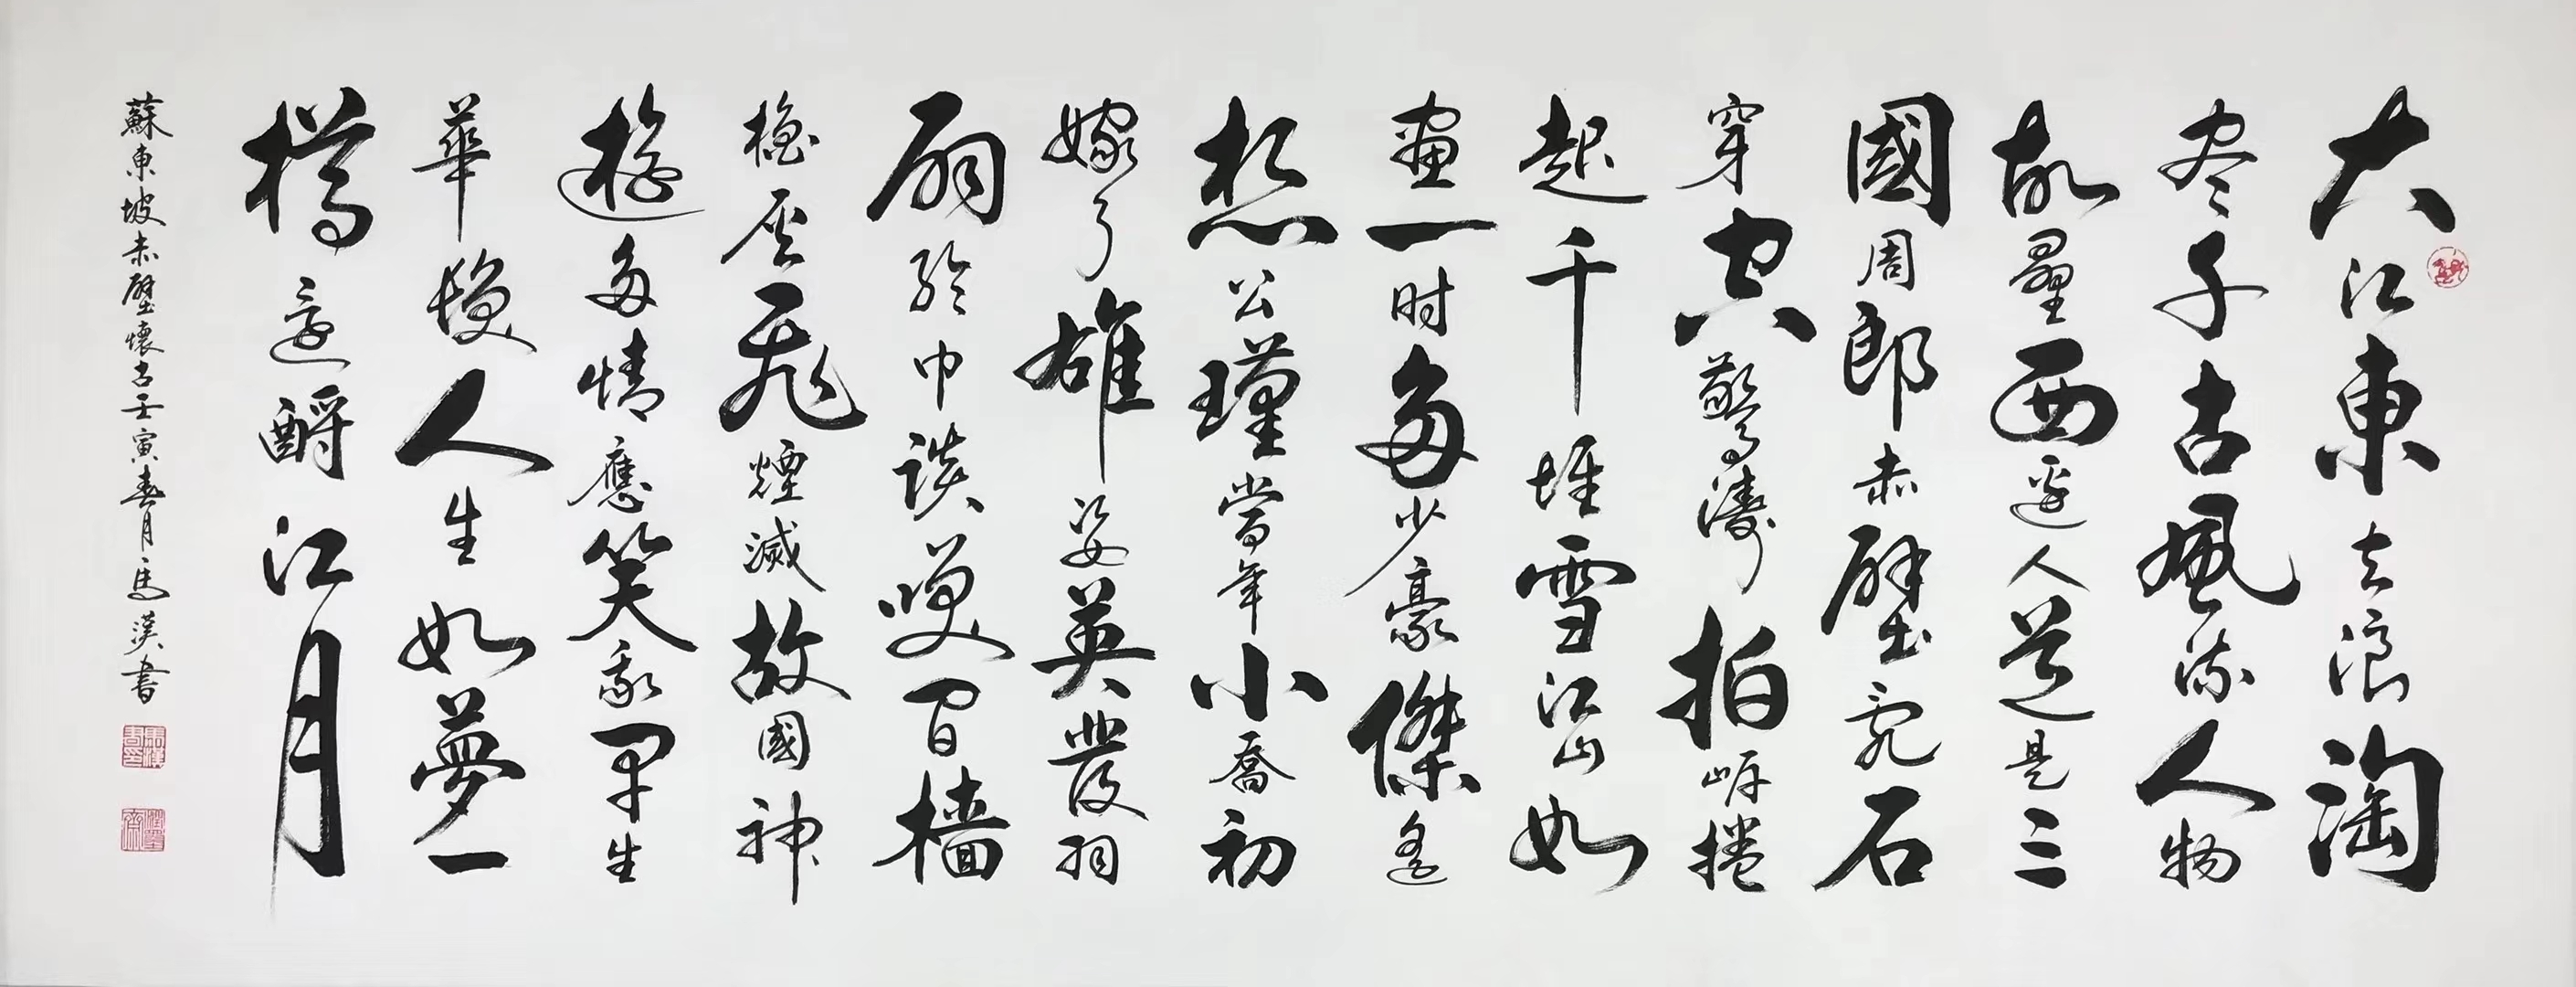 大江東去浪淘
尽千古風流人物
故壘西邊人道是三
國周郎赤壁亂石
穿空驚濤拍岸捲
起千堆雪江山如
畫一时多少豪傑遙
想公瑾當年小喬初
嫁了雄姿英發羽
扇綸巾談笑間檣
櫓灰飛煙滅故國神
遊多情應笑我早生
華髮人生如夢一
樽還酹江月
蘇東坡赤壁懷古壬寅春月馬漢書